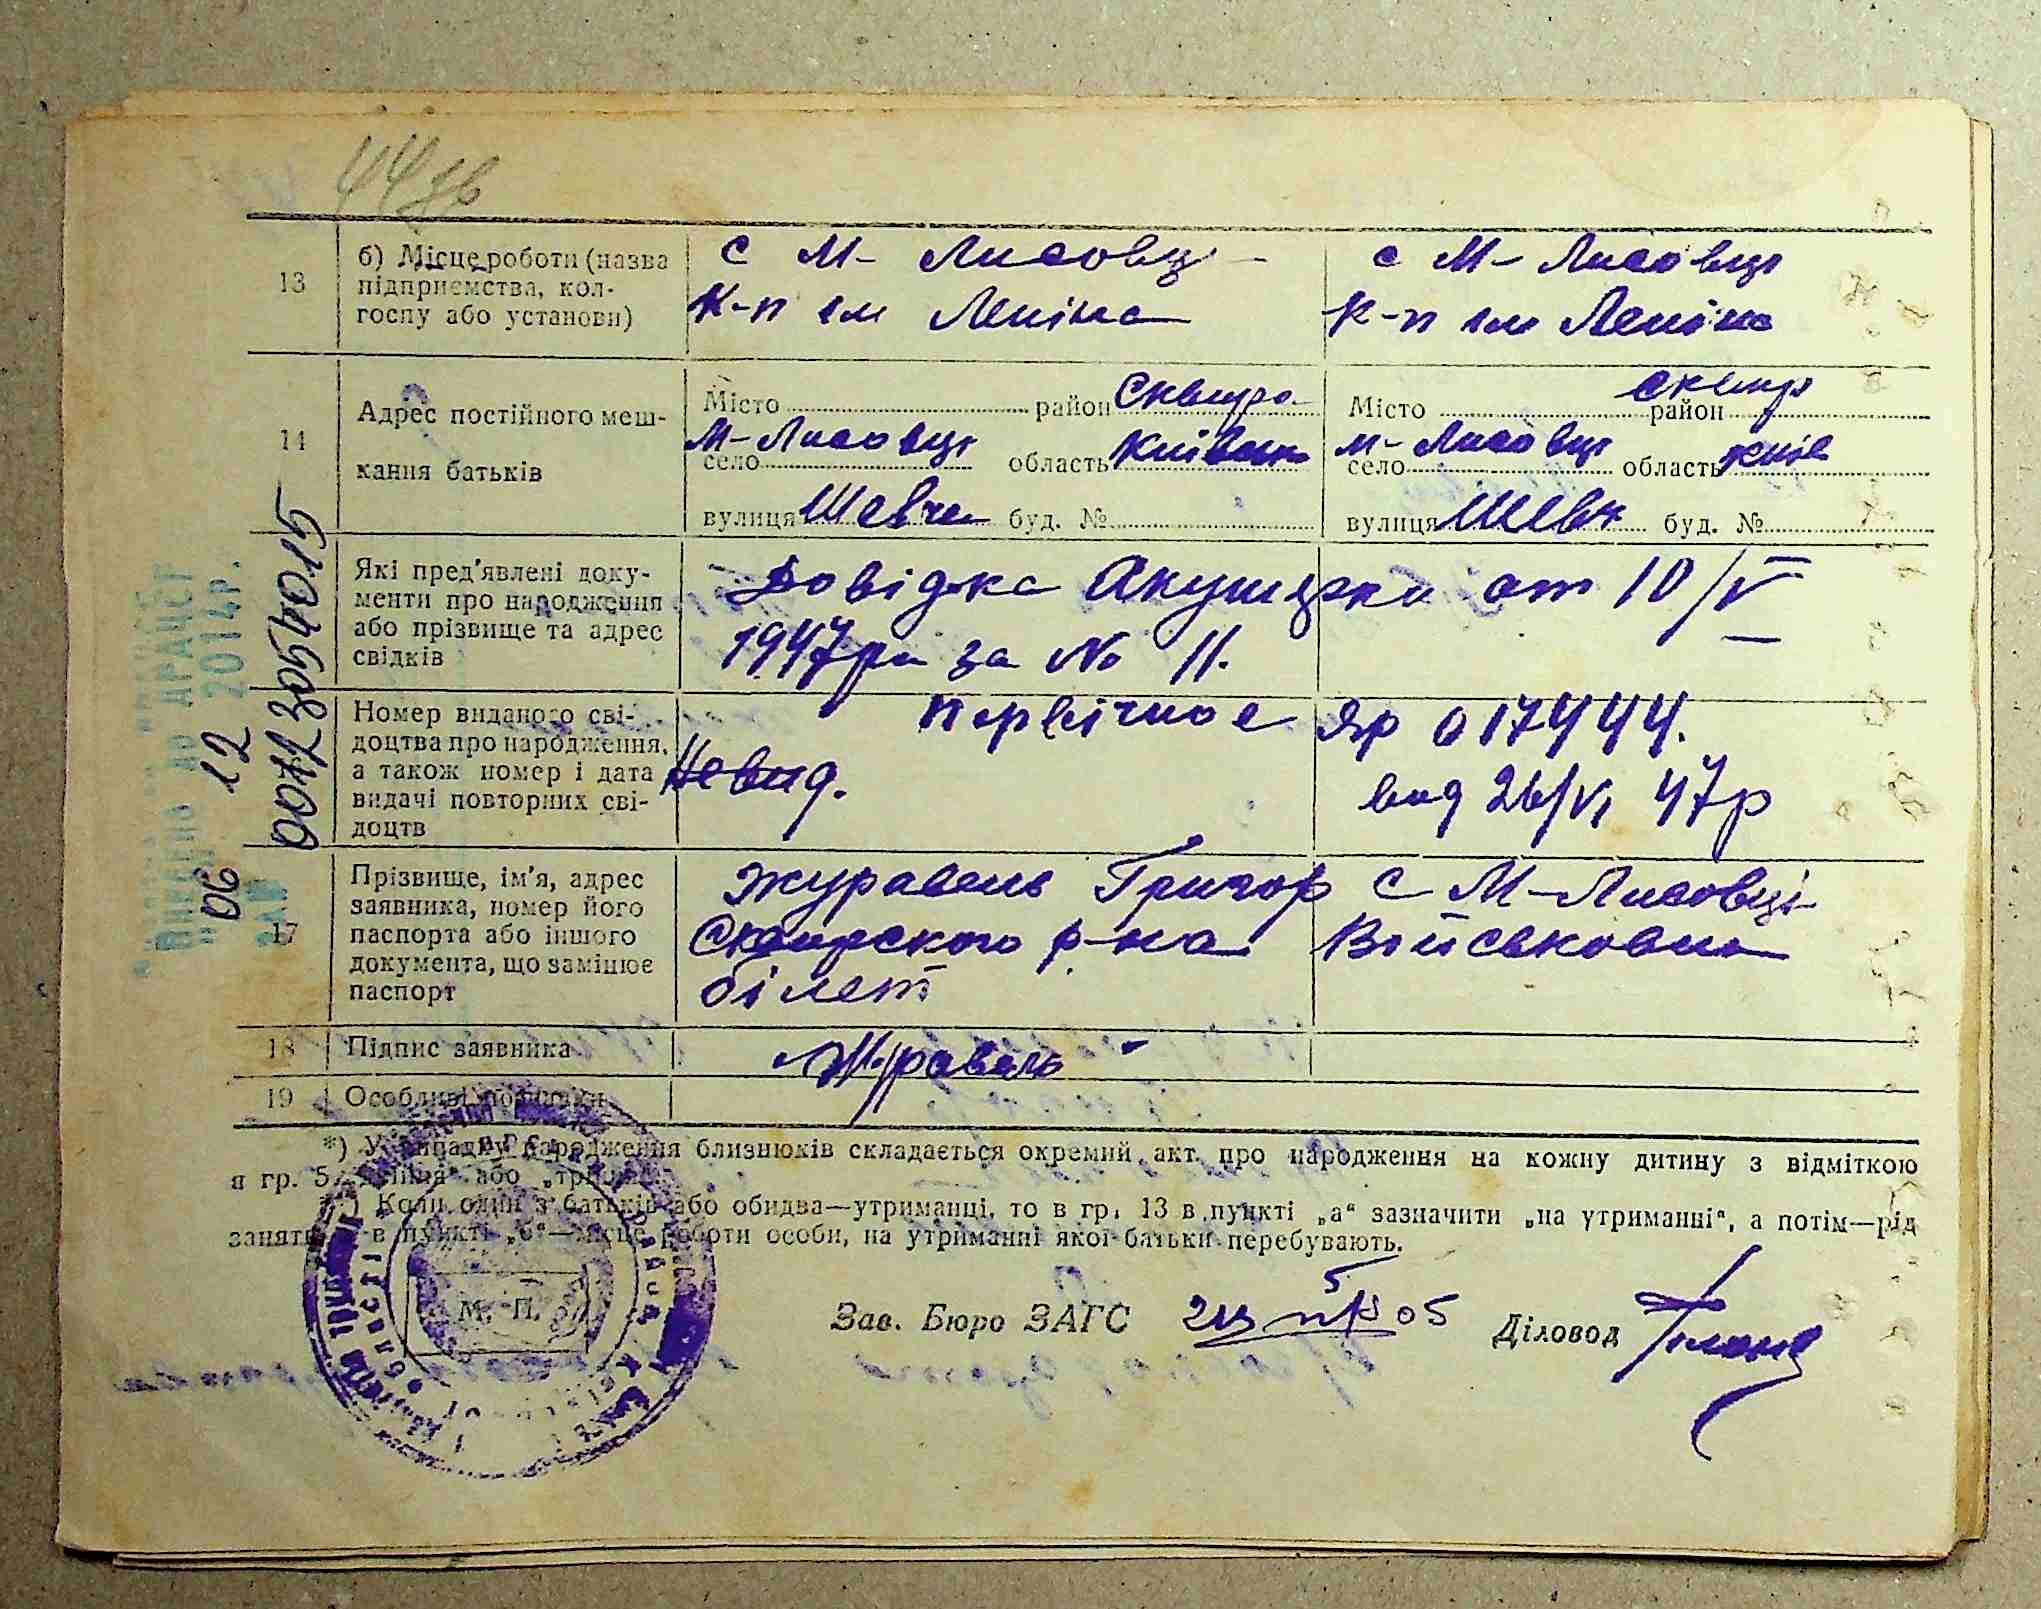 44 зв
13
б) Місце роботи (назва
підприємства, кол-
госпу або установи)
с М- Лисовці
К-п ім Леніна
с М- Лисовці
К-п ім Леніна
14
Адрес постійного меш-
кання батьків
Місто район Сквира
М-Лисовці
село область Київськ
вулиця Шевче буд. №
Місто район Сквир
М-Лисовці
село область Київ
вулиця Шевч буд. №
Які пред'явлені доку-
менти про народження
або прізвище та адрес
свідків
Довідка Акушерки от 10/V
1947р за № 11.
Номер виданого сві-
доцтва про народження,
а також номер і дата
видачі повторних сві-
доцтв
Невид.
первічное Яр 017444.
вид 26/VI 47р
17
Прізвище, ім'я, адрес
заявника, номер його
паспорта або іншого
документа, що замінює
паспорт
Журавель Григор с М-Лисовці
Сквирского р-на Військовий
білет
18
Підпис заявника
Журавель
19
Особливі
*) У випадку народження близнюків складається окремий акт про народження на кожну дитину з відміткою
в гр. 5 або
Коли один з батьків або обидва—утриманці, то в гр. 13 в пункті „а" зазначити „на утриманні", а потім—рід
занять в пункті „б"—місце роботи особи, на утриманні якої батьки перебувають.
М. П.
Зав. Бюро ЗАГС
Діловод
ДРАЦСГ
2014р.
06 12
00123054015